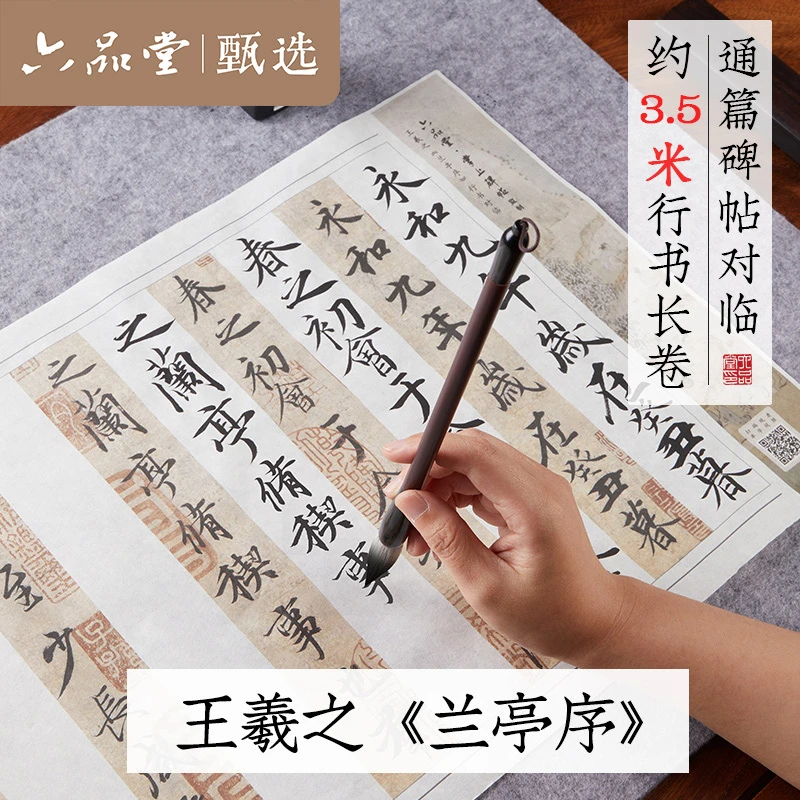 六品堂 甄选
通篇碑帖对临
约3.5米行书长卷
六品堂印
永和九年歲在癸丑暮
永和九年歲在癸丑暮
春之初會于
春之初會于
之蘭亭脩禊事
之蘭亭脩禊事
至少長
王羲之《兰亭序》